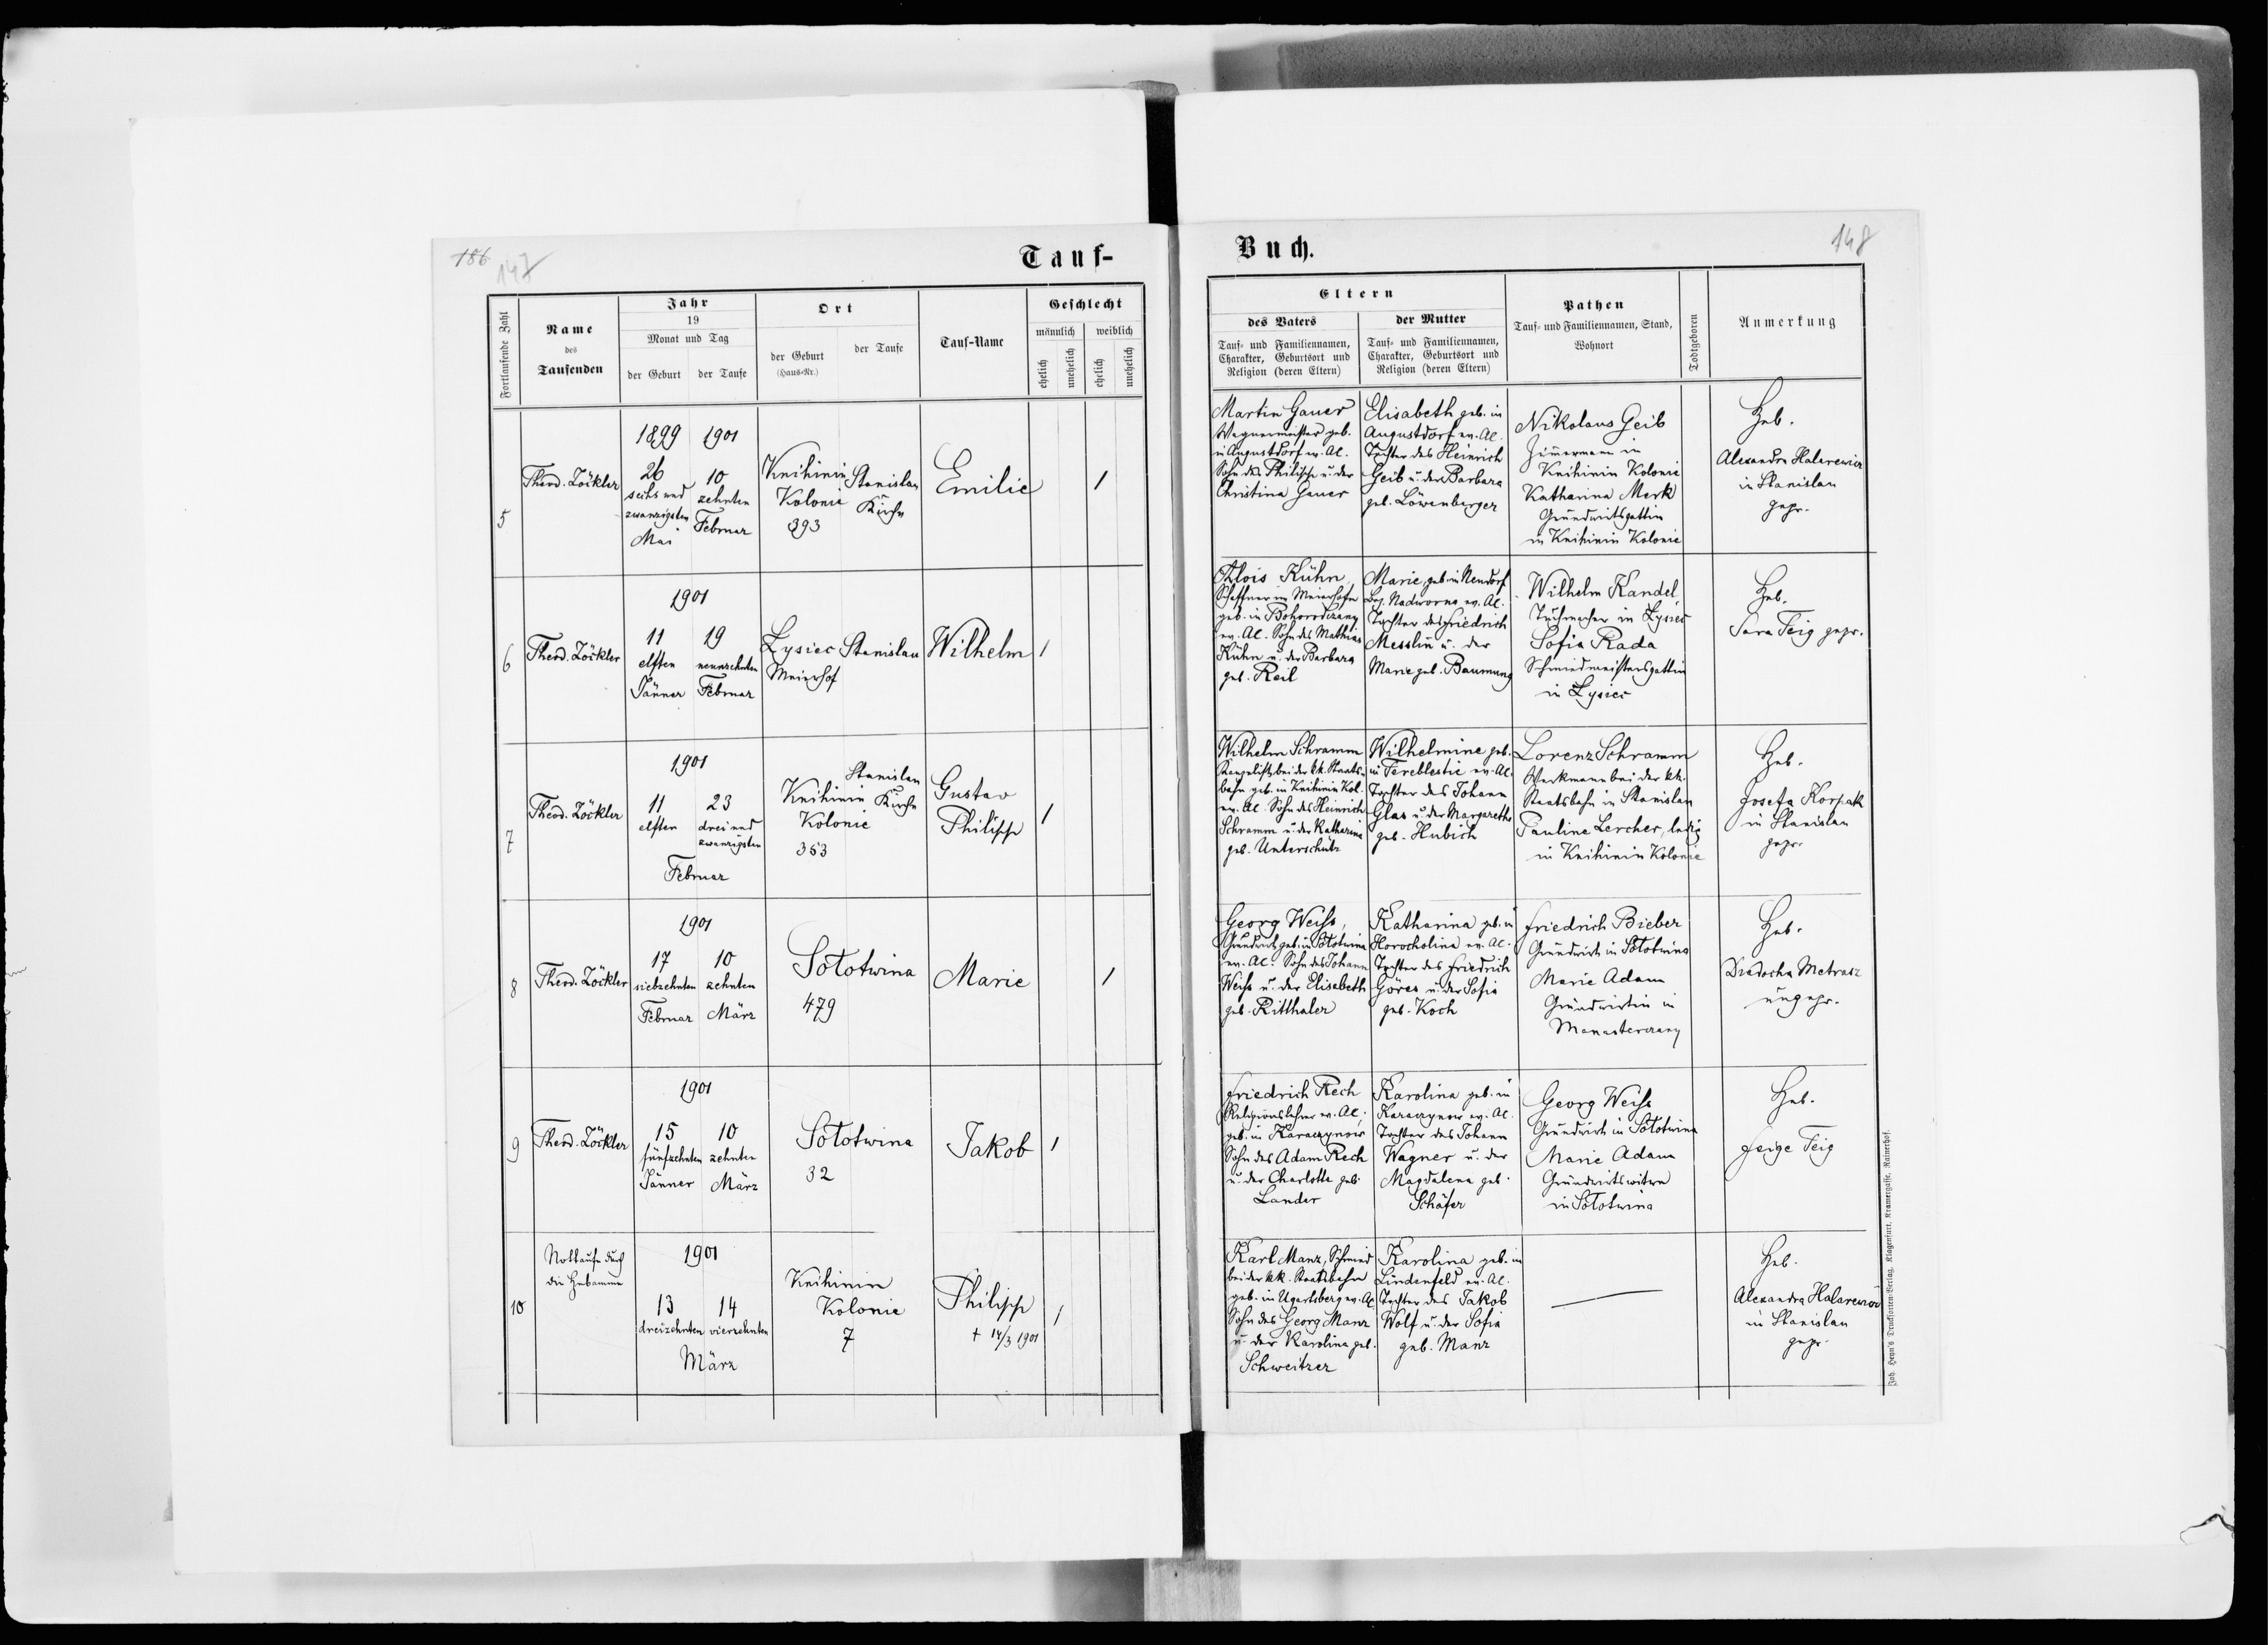 186
147
Tauf-
Fortlaufende Zahl
Name
des
Taufenden
Jahr
19
Monat und Tag
der Geburt
der Taufe
Ort
der Geburt
(Haus-Nr.)
der Taufe
Tauf-Name
Geschlecht
männlich
weiblich
ehelich
unehelich
ehelich
unehelich
5
Theod. Zöckler
1899
1901
26
sechs und
zwanzigsten
Mai
10
zehnten
Februar
Knihinin
Kolonie
393
Stanislau
Kirche
Emilie
1
6
Theod. Zöckler
1901
11
elften
Jänner
19
neunzehnten
Februar
Lysiec
Meierhof
Stanislau
Wilhelm
1
7
Theod. Zöckler
1901
11
elften
23
drei und
zwanzigsten
Februar
Knihinin
Kolonie
353
Stanislau
Kirche
Gustav
Philipp
1
8
Theod. Zöckler
1901
17
siebzehnten
Februar
10
zehnten
März
Sołotwina
479
Marie
1
9
Theod. Zöckler
1901
15
fünfzehnten
Jänner
10
zehnten
März
Sołotwina
32
Jakob
1
10
Nottaufe durch
die Hebamme
1901
13
dreizehnten
14
vierzehnten
März
Knihinin
Kolonie
7
Philipp
† 14/3 1901
1
Buch.
148
Eltern
des Vaters
Tauf- und Familiennamen,
Charakter, Geburtsort und
Religion (deren Eltern)
der Mutter
Tauf- und Familiennamen,
Charakter, Geburtsort und
Religion (deren Eltern)
Pathen
Tauf- und Familiennamen, Stand,
Wohnort
Todtgeboren
Anmerkung
Martin Gauer
Wagnermeister geb.
in Augustdorf ev. AC.
Sohn des Philipp u. der
Christina Gauer
Elisabeth geb. in
Augustdorf ev. AC.
Tochter des Heinrich
Geib u. der Barbara
geb. Löwenberger
Nikolaus Geib
Zimmermann in
Knihinin Kolonie
Katharina Merk
Grundwirtsgattin
in Knihinin Kolonie
Heb.
Alexandra Halarewicz
in Stanislau
gepr.
Alois Kühn,
Schaffner im Meierhofe
geb. in Bohorodczany
ev. AC. Sohn des Mathias
Kühn u. der Barbara
geb. Reil
Marie, geb. in Neudorf
Bez. Nadworna ev. AC.
Tochter des Friedrich
Messlin u. der
Marie geb. Baumung
Wilhelm Kandel
Tuchmacher in Lysiec
Sofia Rada
Schmiedmeistersgattin
in Lysiec
Heb.
Sara Feig gepr.
Wilhelm Schramm
Kanzelist bei der kk. Staats-
bahn geb. in Knihinin Kol.
ev. AC. Sohn des Heinrich
Schramm u. der Katharina
geb. Unterschütz
Wilhelmine geb.
in Tereblestie ev. AC.
Tochter des Johann
Glas u. der Margarethe
geb. Hubich
Lorenz Schramm
Werkmann bei der kk.
Staatsbahn in Stanislau
Pauline Lercher, ledig
in Knihinin Kolonie
Heb.
Josefa Korpak
in Stanislau
gepr.
Georg Weiss,
Grundwirt geb. in Sołotwina
ev. AC. Sohn des Johann
Weiss u. der Elisabeth
geb. Ritthaler
Katharina geb. in
Horocholina ev. AC.
Tochter des Friedrich
Göres u. der Sofia
geb. Koch
Friedrich Bieber
Grundwirt in Sołotwina
Marie Adam
Grundwirtin in
Monasterczany
Heb.
Metrasz
ungepr.
Friedrich Rech
Religionslehrer ev. AC.
geb. in Karaczynow
Sohn des Adam Rech
u. der Charlotte geb.
Lander
Karolina geb. in
Karaczynow ev. AC.
Tochter des Johann
Wagner u. der
Magdalena geb.
Schäfer
Georg Weiss
Grundwirt in Sołotwina
Marie Adam
Grundwirtswitwe
in Sołotwina
Heb.
Feige Feig
Karl Manz, Schmied
bei der kk. Staatsbahn
geb. in Ugartsberg ev. AC.
Sohn des Georg Manz
u. der Karolina geb.
Schweitzer
Karolina geb. in
Lindenfeld ev. AC.
Tochter des Jakob
Wolf u. der Sofia
geb. Manz
Heb.
Alexandra Halarewicz
in Stanislau
gepr.
Joh. Heyn's Drucksorten-Verlag, Klagenfurt, Kramergasse, Rainerhof.